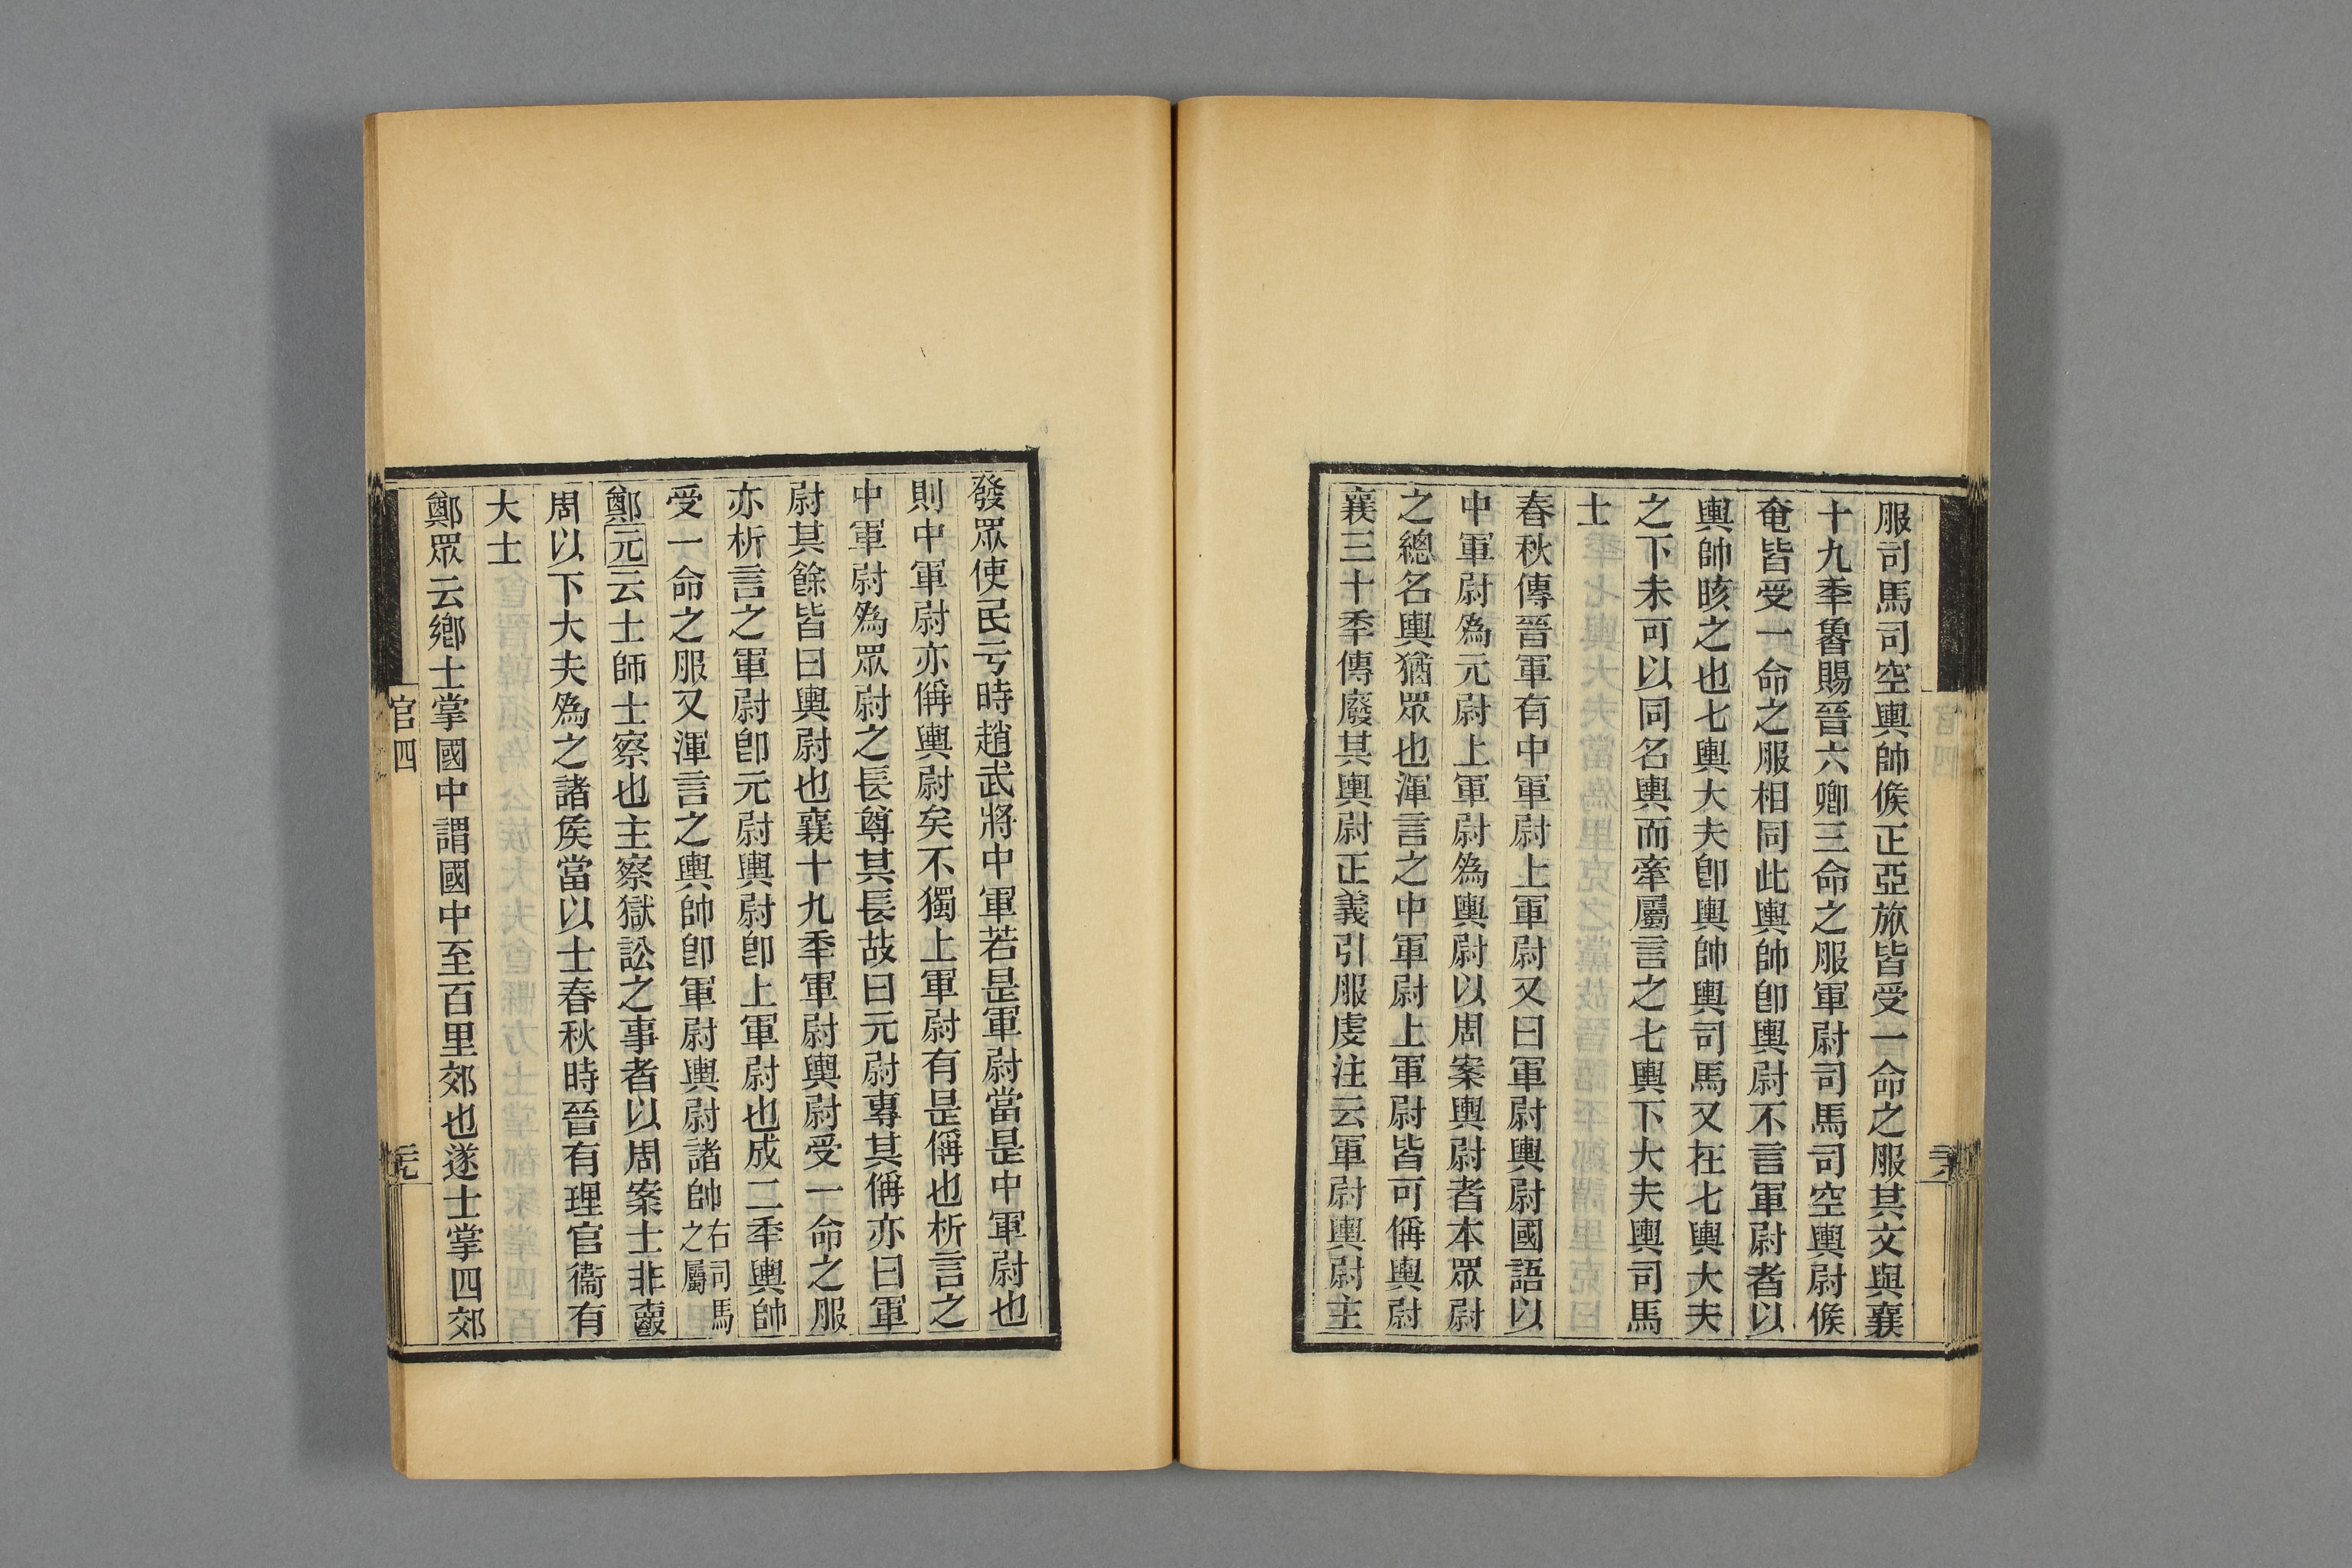 服司馬司空輿帥候正亞旅皆受一命之服其文與襄
十九季魯賜晉六卿三命之服軍尉司馬司空輿尉候
奄皆受一命之服相同此輿帥卽輿尉不言軍尉者以
輿帥晐之也七輿大夫卽輿帥輿司馬又在七輿大夫
之下未可以同名輿而牽屬言之七輿下大夫輿司馬
士
春秋傳晉軍有中軍尉上軍尉又曰軍尉輿尉國語以
中軍尉爲元尉上軍尉爲輿尉以周案輿尉者本眾尉
之總名輿猶眾也渾言之中軍尉上軍尉皆可偁輿尉
襄三十季傳廢其輿尉正義引服虔注云軍尉輿尉主
官四
發眾使民亏時趙武將中軍若是軍尉當是中軍尉也
則中軍尉亦偁輿尉矣不獨上軍尉有是偁也析言之
中軍尉爲眾尉之長尊其長故曰元尉專其偁亦曰軍
尉其餘皆曰輿尉也襄十九季軍尉輿尉受一命之服
亦析言之軍尉卽元尉輿尉卽上軍尉也成二季輿帥
受一命之服又渾言之輿帥卽軍尉輿尉諸帥右司馬之屬
鄭元云士師士察也主察獄訟之事者以周案士非
周以下大夫爲之諸矦當以士春秋時晉有理官衞有
大士
鄭眾云鄉士掌國中謂國中至百里郊也遂士掌四郊
官四